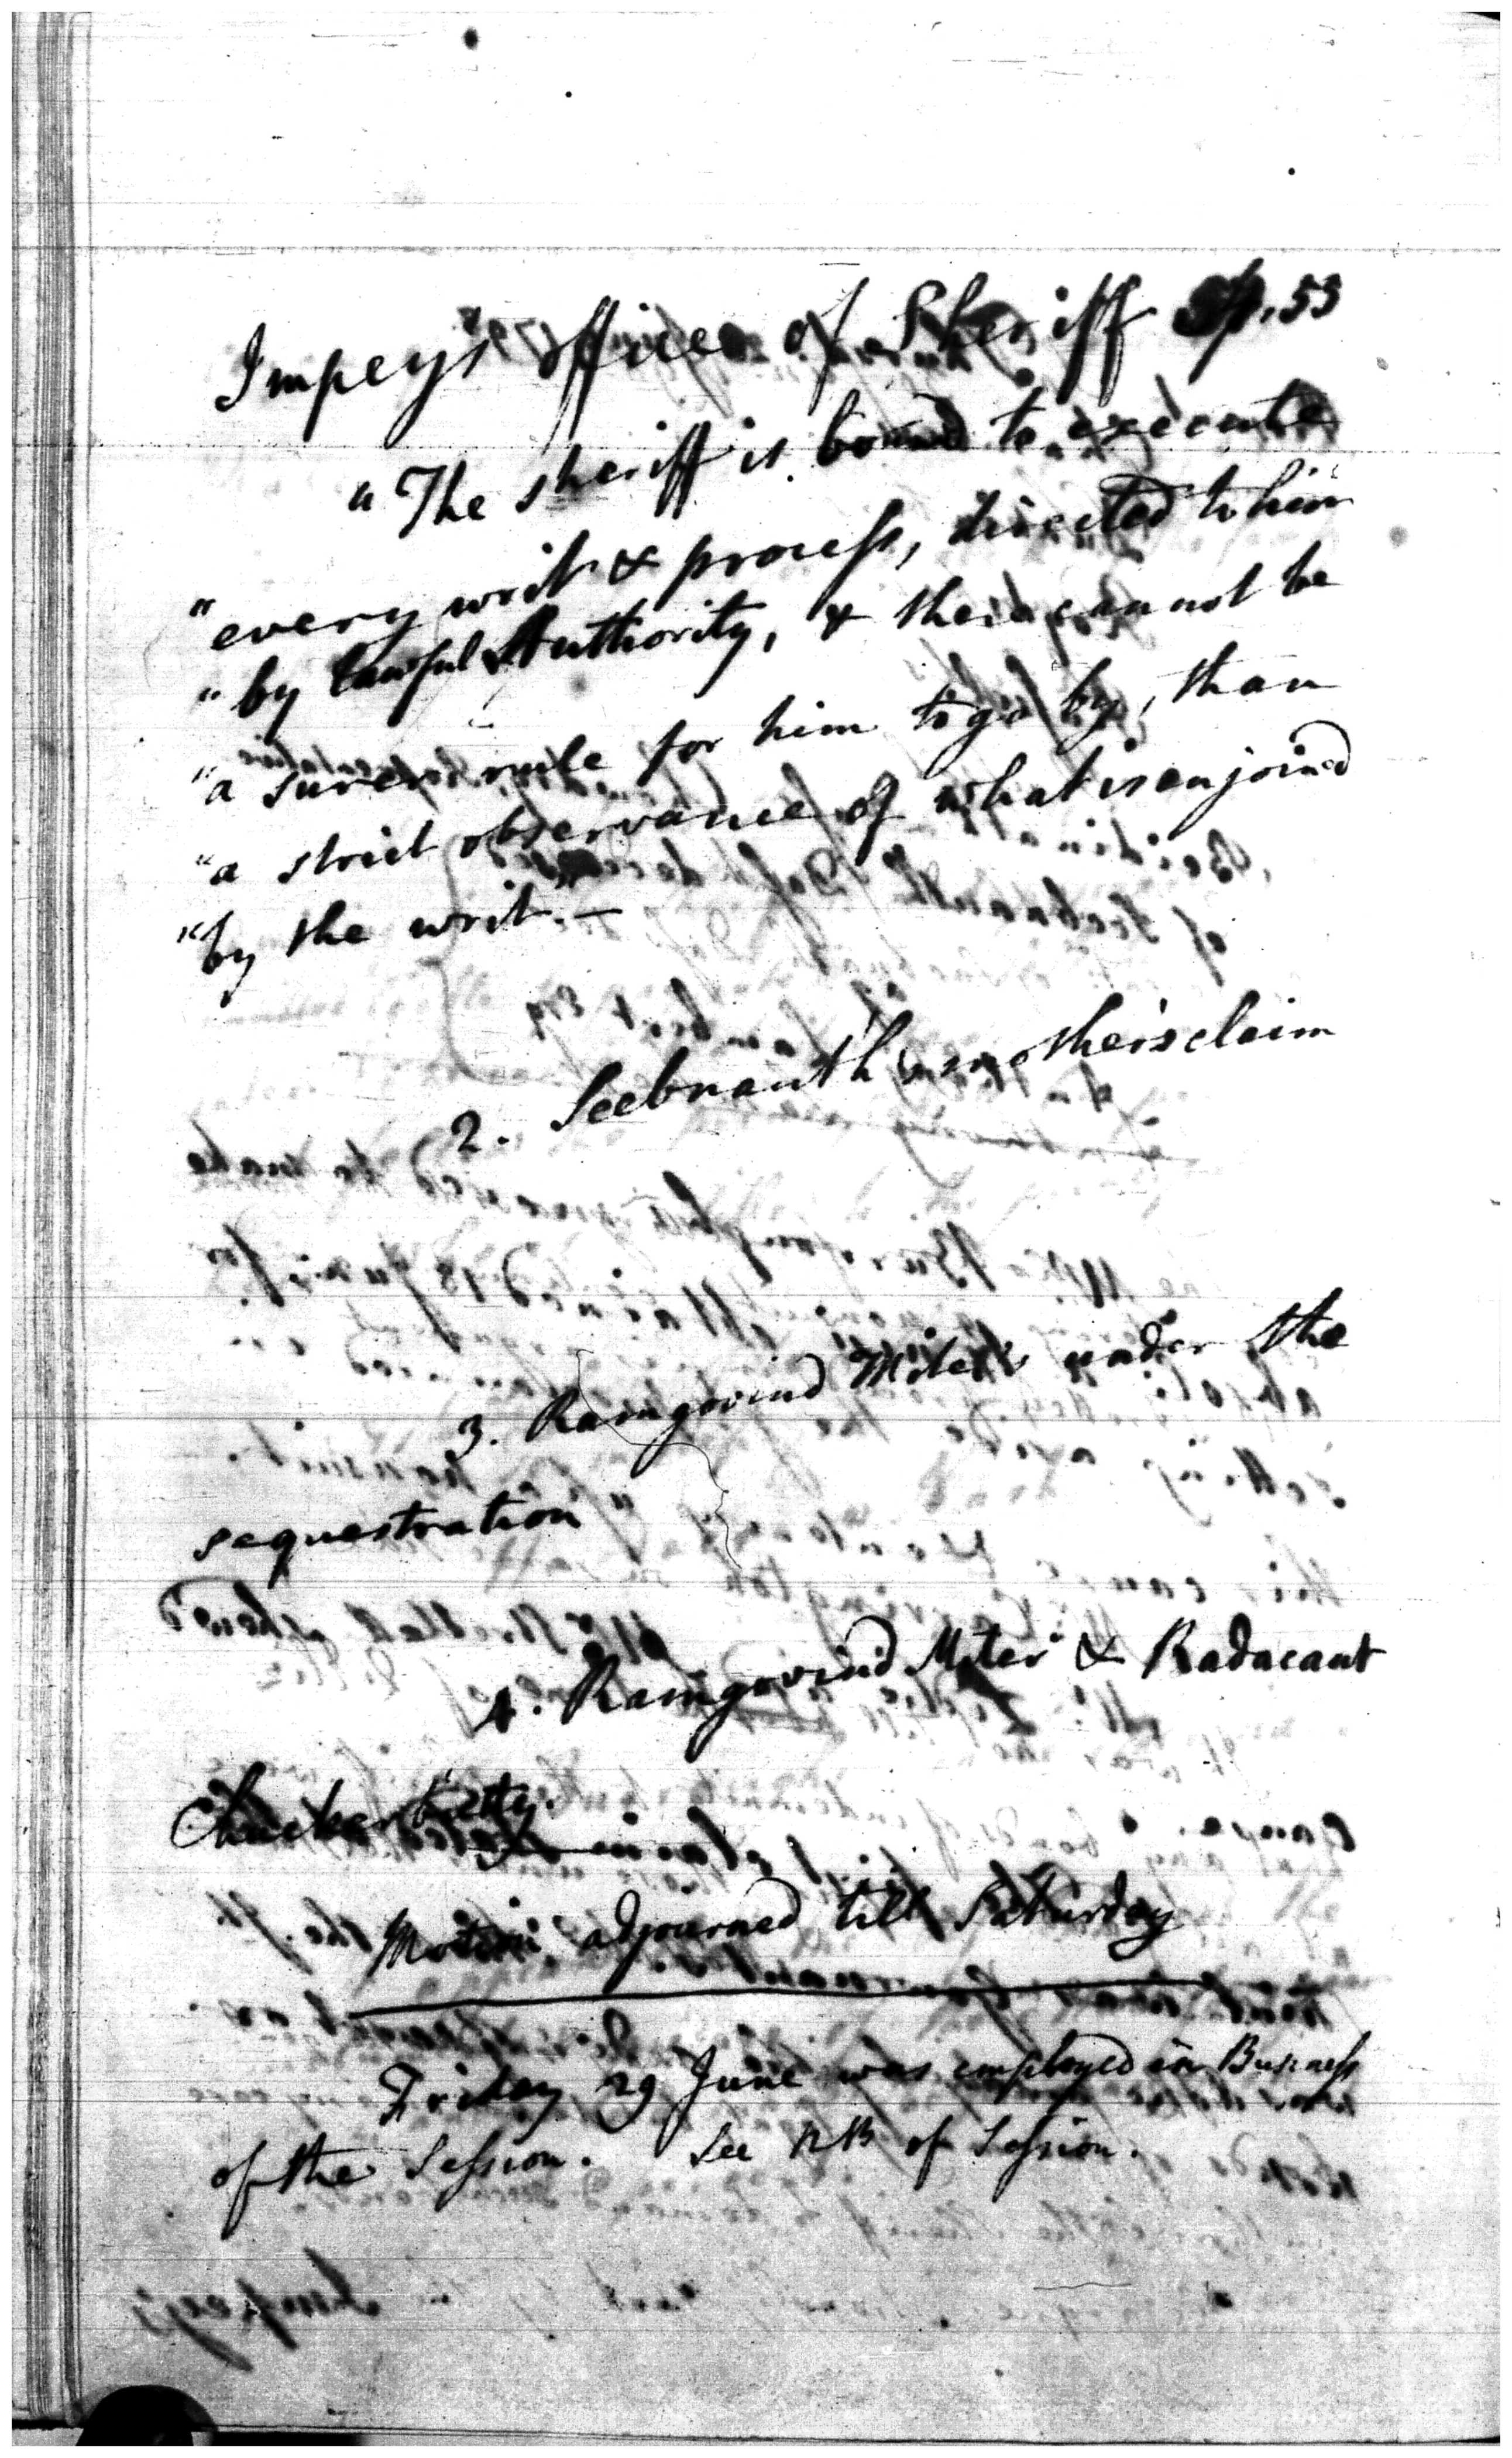 Impeys office of Sheriff p. 53
"The sheriff is bound to execute
"every writ & process, directed to him
"by lawful Authority, & there cannot be
"a surer rule for him to go by, than
"a strict observance of what is enjoined
"by the writ. —
2. Seebnauth's mother's claim
3. Ramgovind Miter's under the
sequestration
4. Ramgovind Miter & Radacant
Chuckerbetty.
Motion adjourned till Saturday
Friday 29 June was employed in Business
of the Session. See NB of Session.